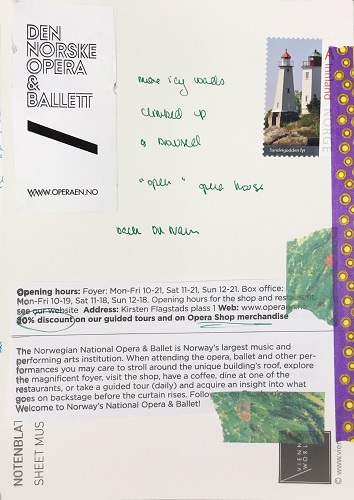 DEN
NORSKE
OPERA
&
BALLETT
WWW.OPERAEN.NO
more icy roads
climbed up
a
"open" opera house
NORGE
Sandvigodden fyr
Opening hours: Foyer: Mon-Fri 10-21, Sat 11-21, Sun 12-21. Box office:
Mon-Fri 10-19, Sat 11-18, Sun 12-18. Opening hours for the shop and restaurant,
see our website Address: Kirsten Flagstads plass 1 Web: www.opera
20% discount on our guided tours and on Opera Shop merchandise
The Norwegian National Opera & Ballet is Norway's largest music and
performing arts institution. When attending the opera, ballet and other per-
formances you may care to stroll around the unique building's roof, explore
the magnificent foyer, visit the shop, have a coffee, dine at one of the
restaurants, or take a guided tour (daily) and acquire an insight into what
goes on backstage before the curtain rises. Follow
Welcome to Norway's National Opera & Ballet!
NOTENBLAT
SHEET MUS
VIENN
WORL
© www.vien